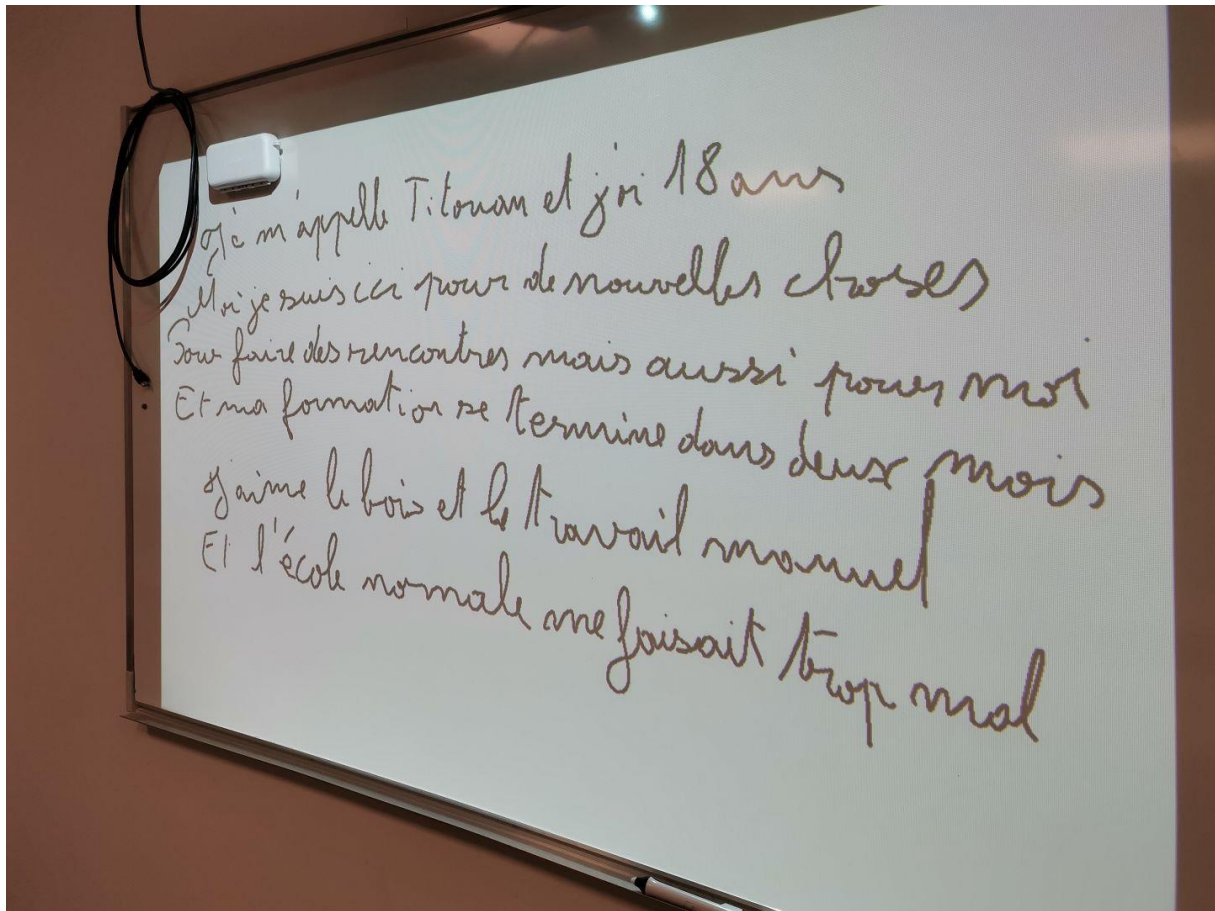 Je m'appelle Titouan et j'ai 18 ans
Moi je suis ici pour de nouvelles choses
Pour faire des rencontres mais aussi pour moi
Et ma formation se termine dans deux mois
J'aime le bois et le travail manuel
Et l'école normale me faisait trop mal